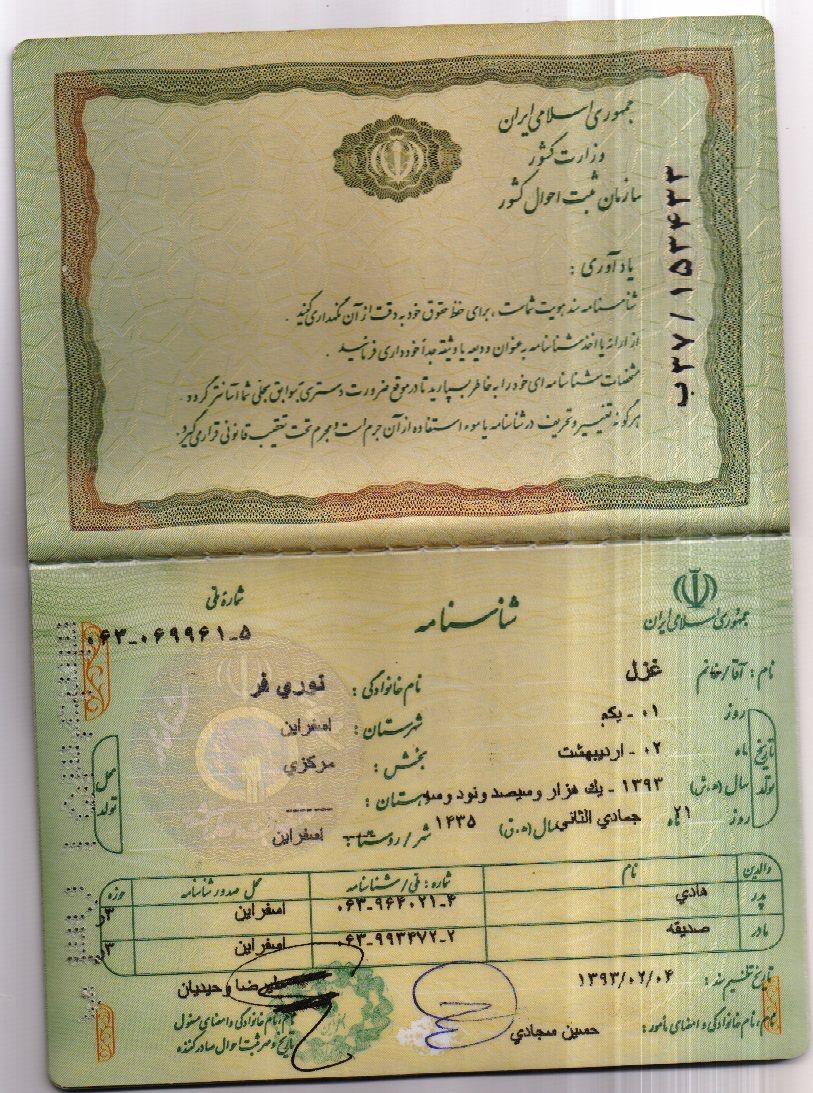 جمهوری اسلامی ایران
وزارت کشور
سازمان ثبت احوال کشور
ب۳۷/۱۵۳۴۳۳
یادآوری :
شناسنامه سند هویت شماست ، برای حفظ حقوق خود به دقت از آن نگهداری کنید .
از ارائه یا اخذ شناسنامه به عنوان ودیعه یا وثیقه جداً خودداری فرمائید .
مشخصات شناسنامه ای خود را به خاطر بسپارید تا در موقع ضرورت دسترسی به سوابق سجلی شما آسانتر گردد .
هرگونه تغییر و تحریف در شناسنامه یا سوء استفاده از آن جرم است و مجرم تحت تعقیب قانونی قرار می گیرد .
جمهوری اسلامی ایران
شناسنامه
شمارهٔ ملی
۰۶۳-۰۶۹۹۶۱-۵
نام : آقا/خانم غزل
نام خانوادگی : نوري فر
تاریخ تولد
روز ۰۱ - یکم
شهرستان : اسفراین
ماه ۰۲ - اردیبهشت
بخش : مرکزي
سال (ه.ش) ۱۳۹۳ - یك هزار وسیصد ونود وسه
دهستان : ------
روز ۲۱ ماه جمادي الثاني سال (ه.ق) ۱۴۳۵
شهر/روستا : اسفراین
محل تولد
والدین نام شماره : ملی/شناسنامه محل صدور شناسنامه حوزه
پدر هادي ۰۶۳-۹۶۴۰۲۱-۴ اسفراین
مادر صدیقه ۰۶۳-۹۹۳۴۷۲-۲ اسفراین
تاریخ تنظیم سند : ۱۳۹۳/۰۲/۰۴
علیرضا وحیدیان
نام ، نام خانوادگی و امضای مأمور : حسین سجادي
نام ، نام خانوادگی و امضای مسئول
تاریخ و مهر ثبت احوال صادر کننده